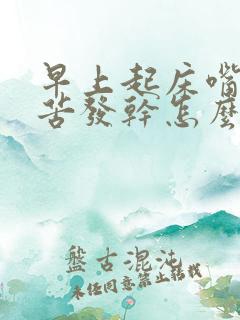 早上起床嘴
苦發幹怎麼
盤古混沌
未經同意禁止轉載